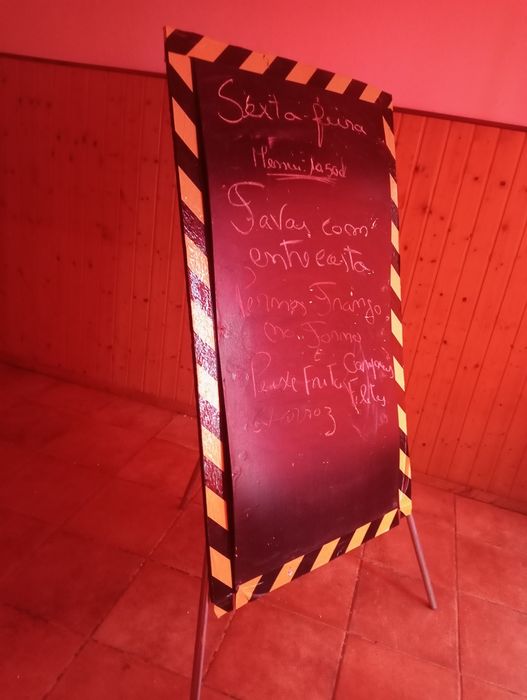 Sexta-feira
Menu:
Favas com
entrecosta
Pernas Frango
no Forno
Peixe Frito
Filetes
Arroz